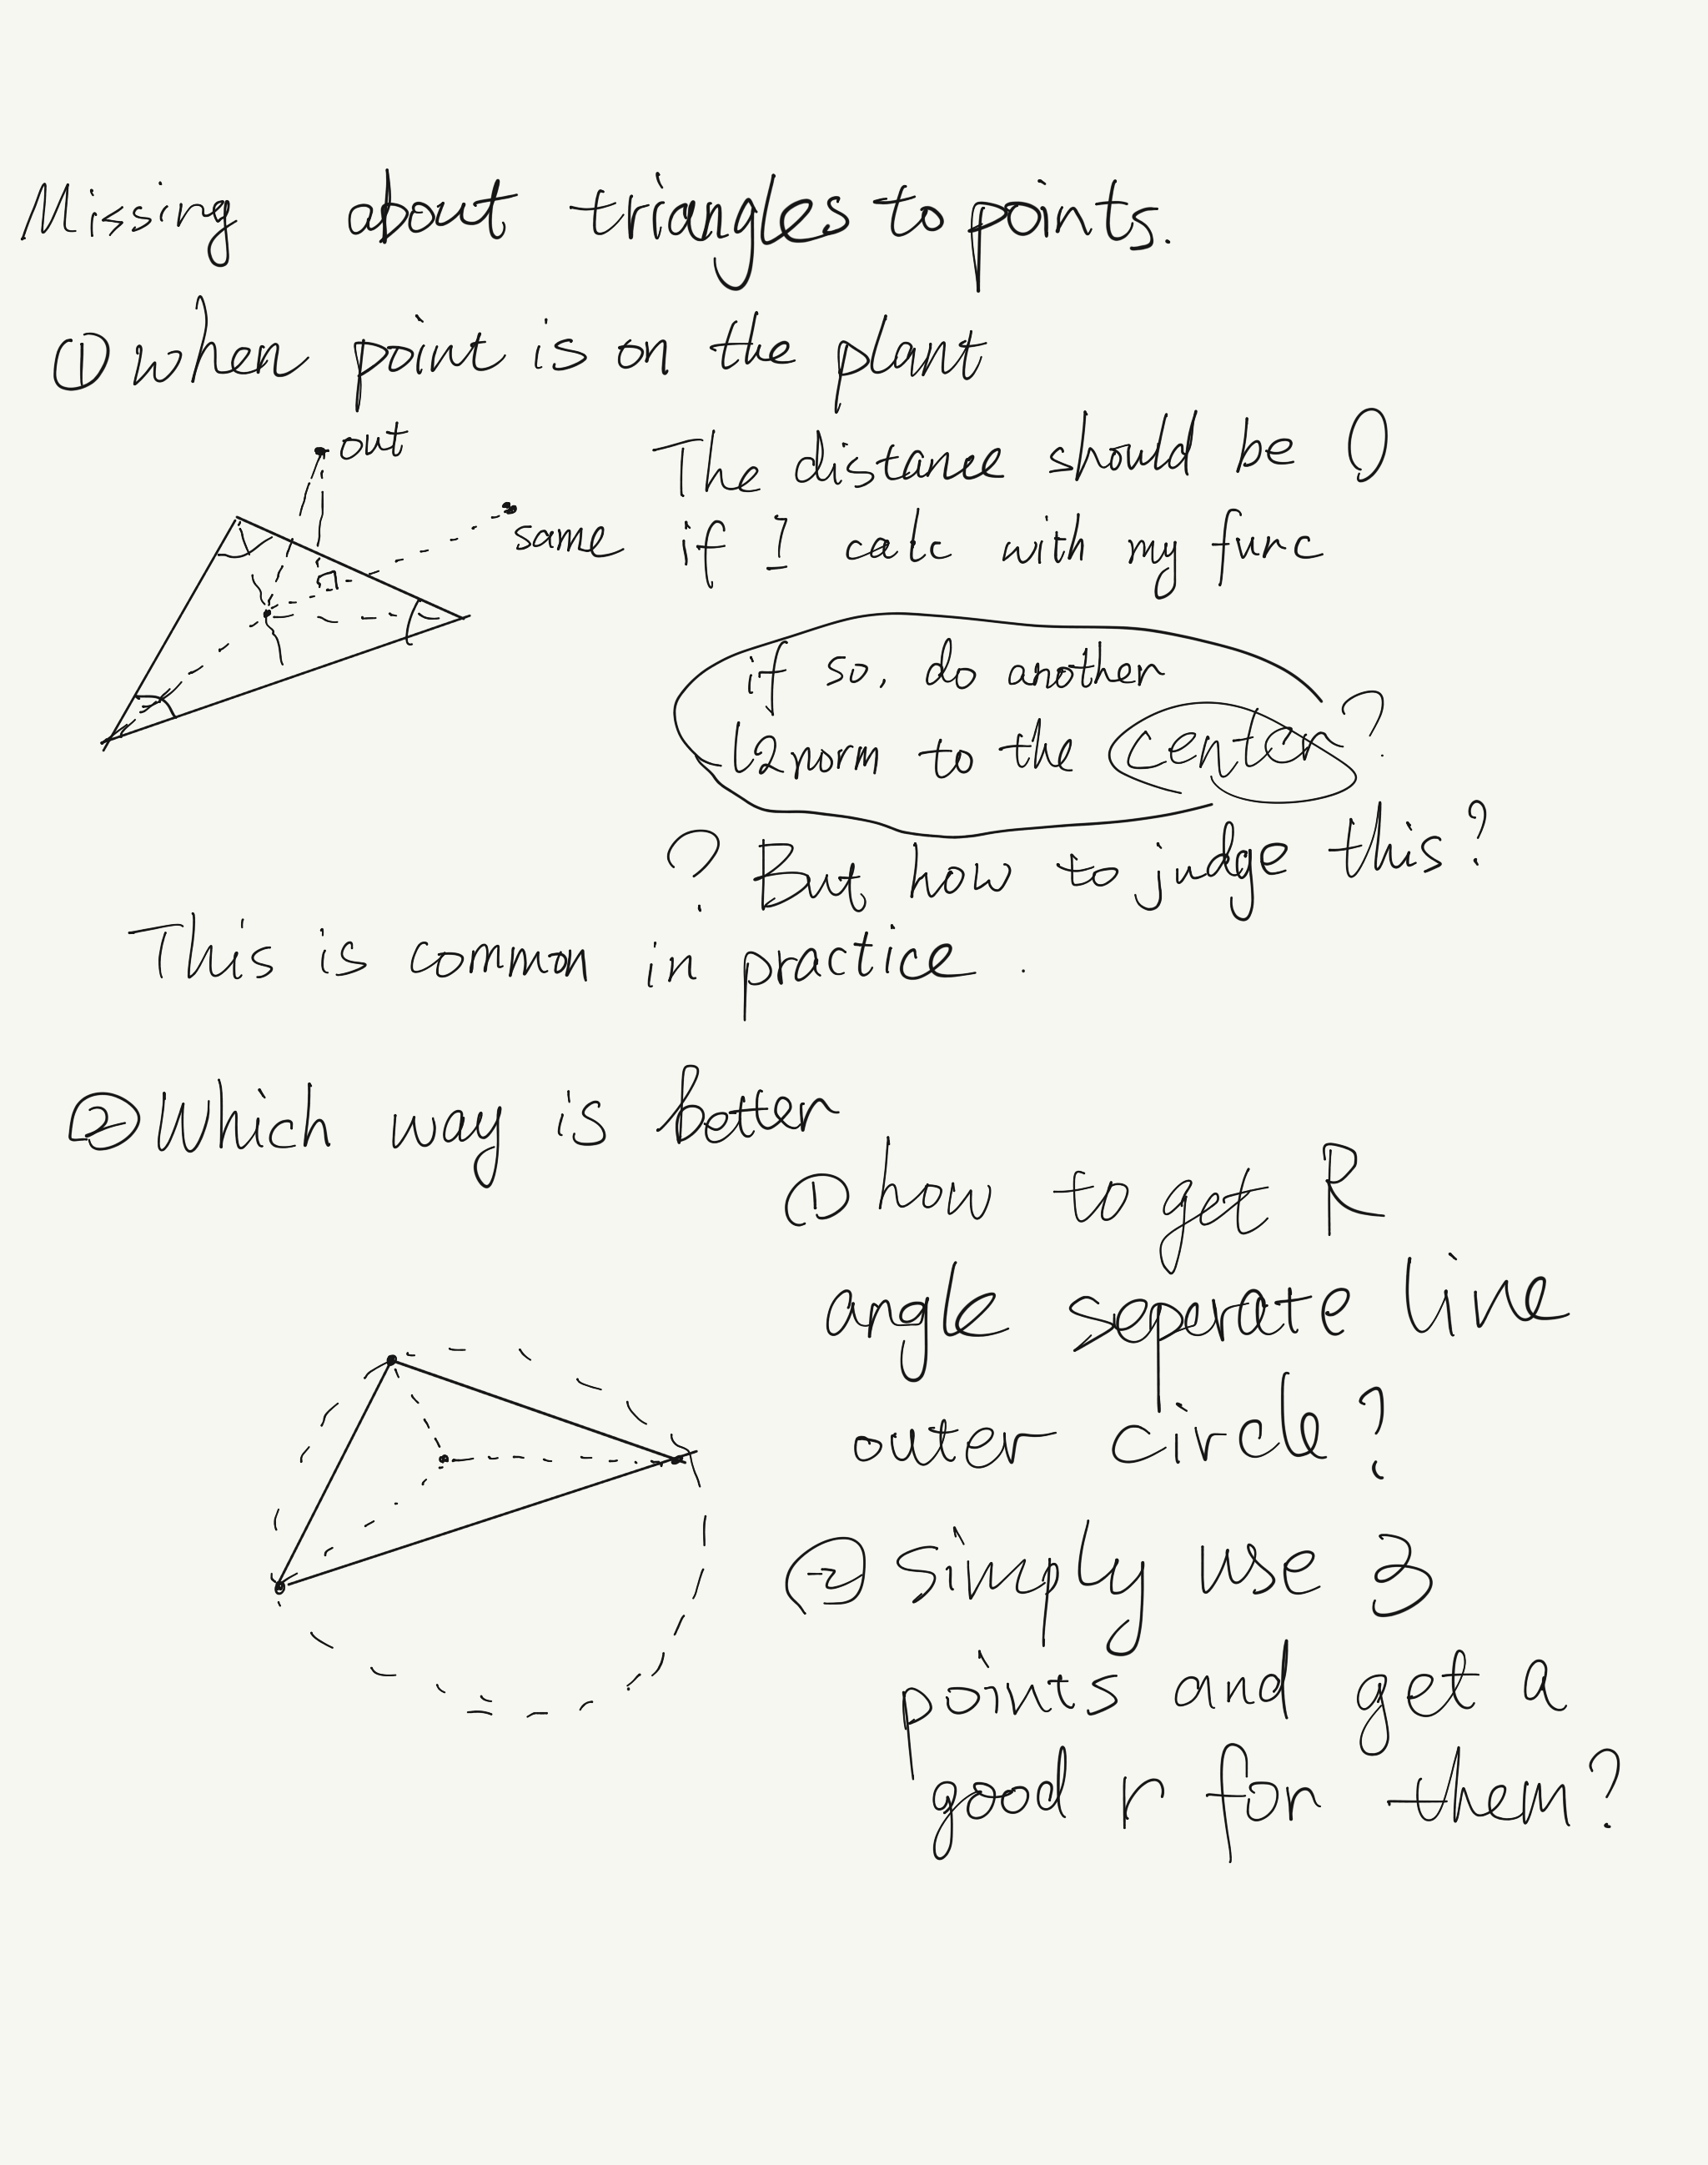 Missing about triangles to points.
① when point is on the plant
out
The distance should be 0
same
if I calc with my func
if so, do another
l2norm to the center?
? But how to judge this?
This is common in practice.
② Which way is better
① how to get R
angle seperate line
outer circle?
② simply use 3
points and get a
good r for them?